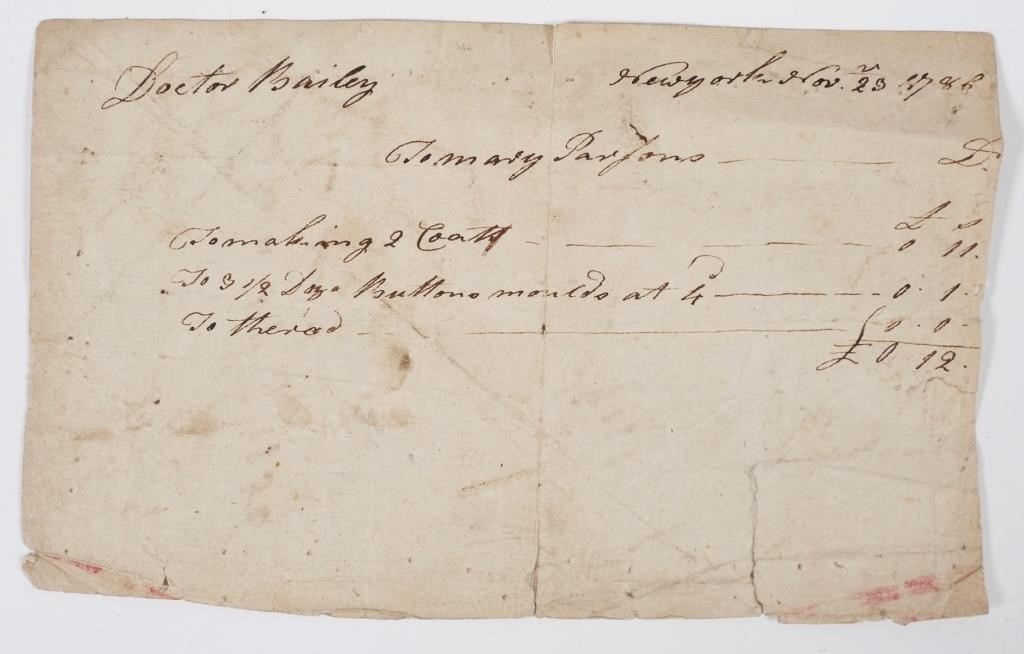 Doctor Bailey Newyork Nov.r 23 178
To mary Parsons — D.r
£ s
To making 2 Coats — — — 0 11.
To 3 1/2 Doz.o Buttons moulds at 4d — 0. 1.
To theread — — 0. 0.
£ 0 12.